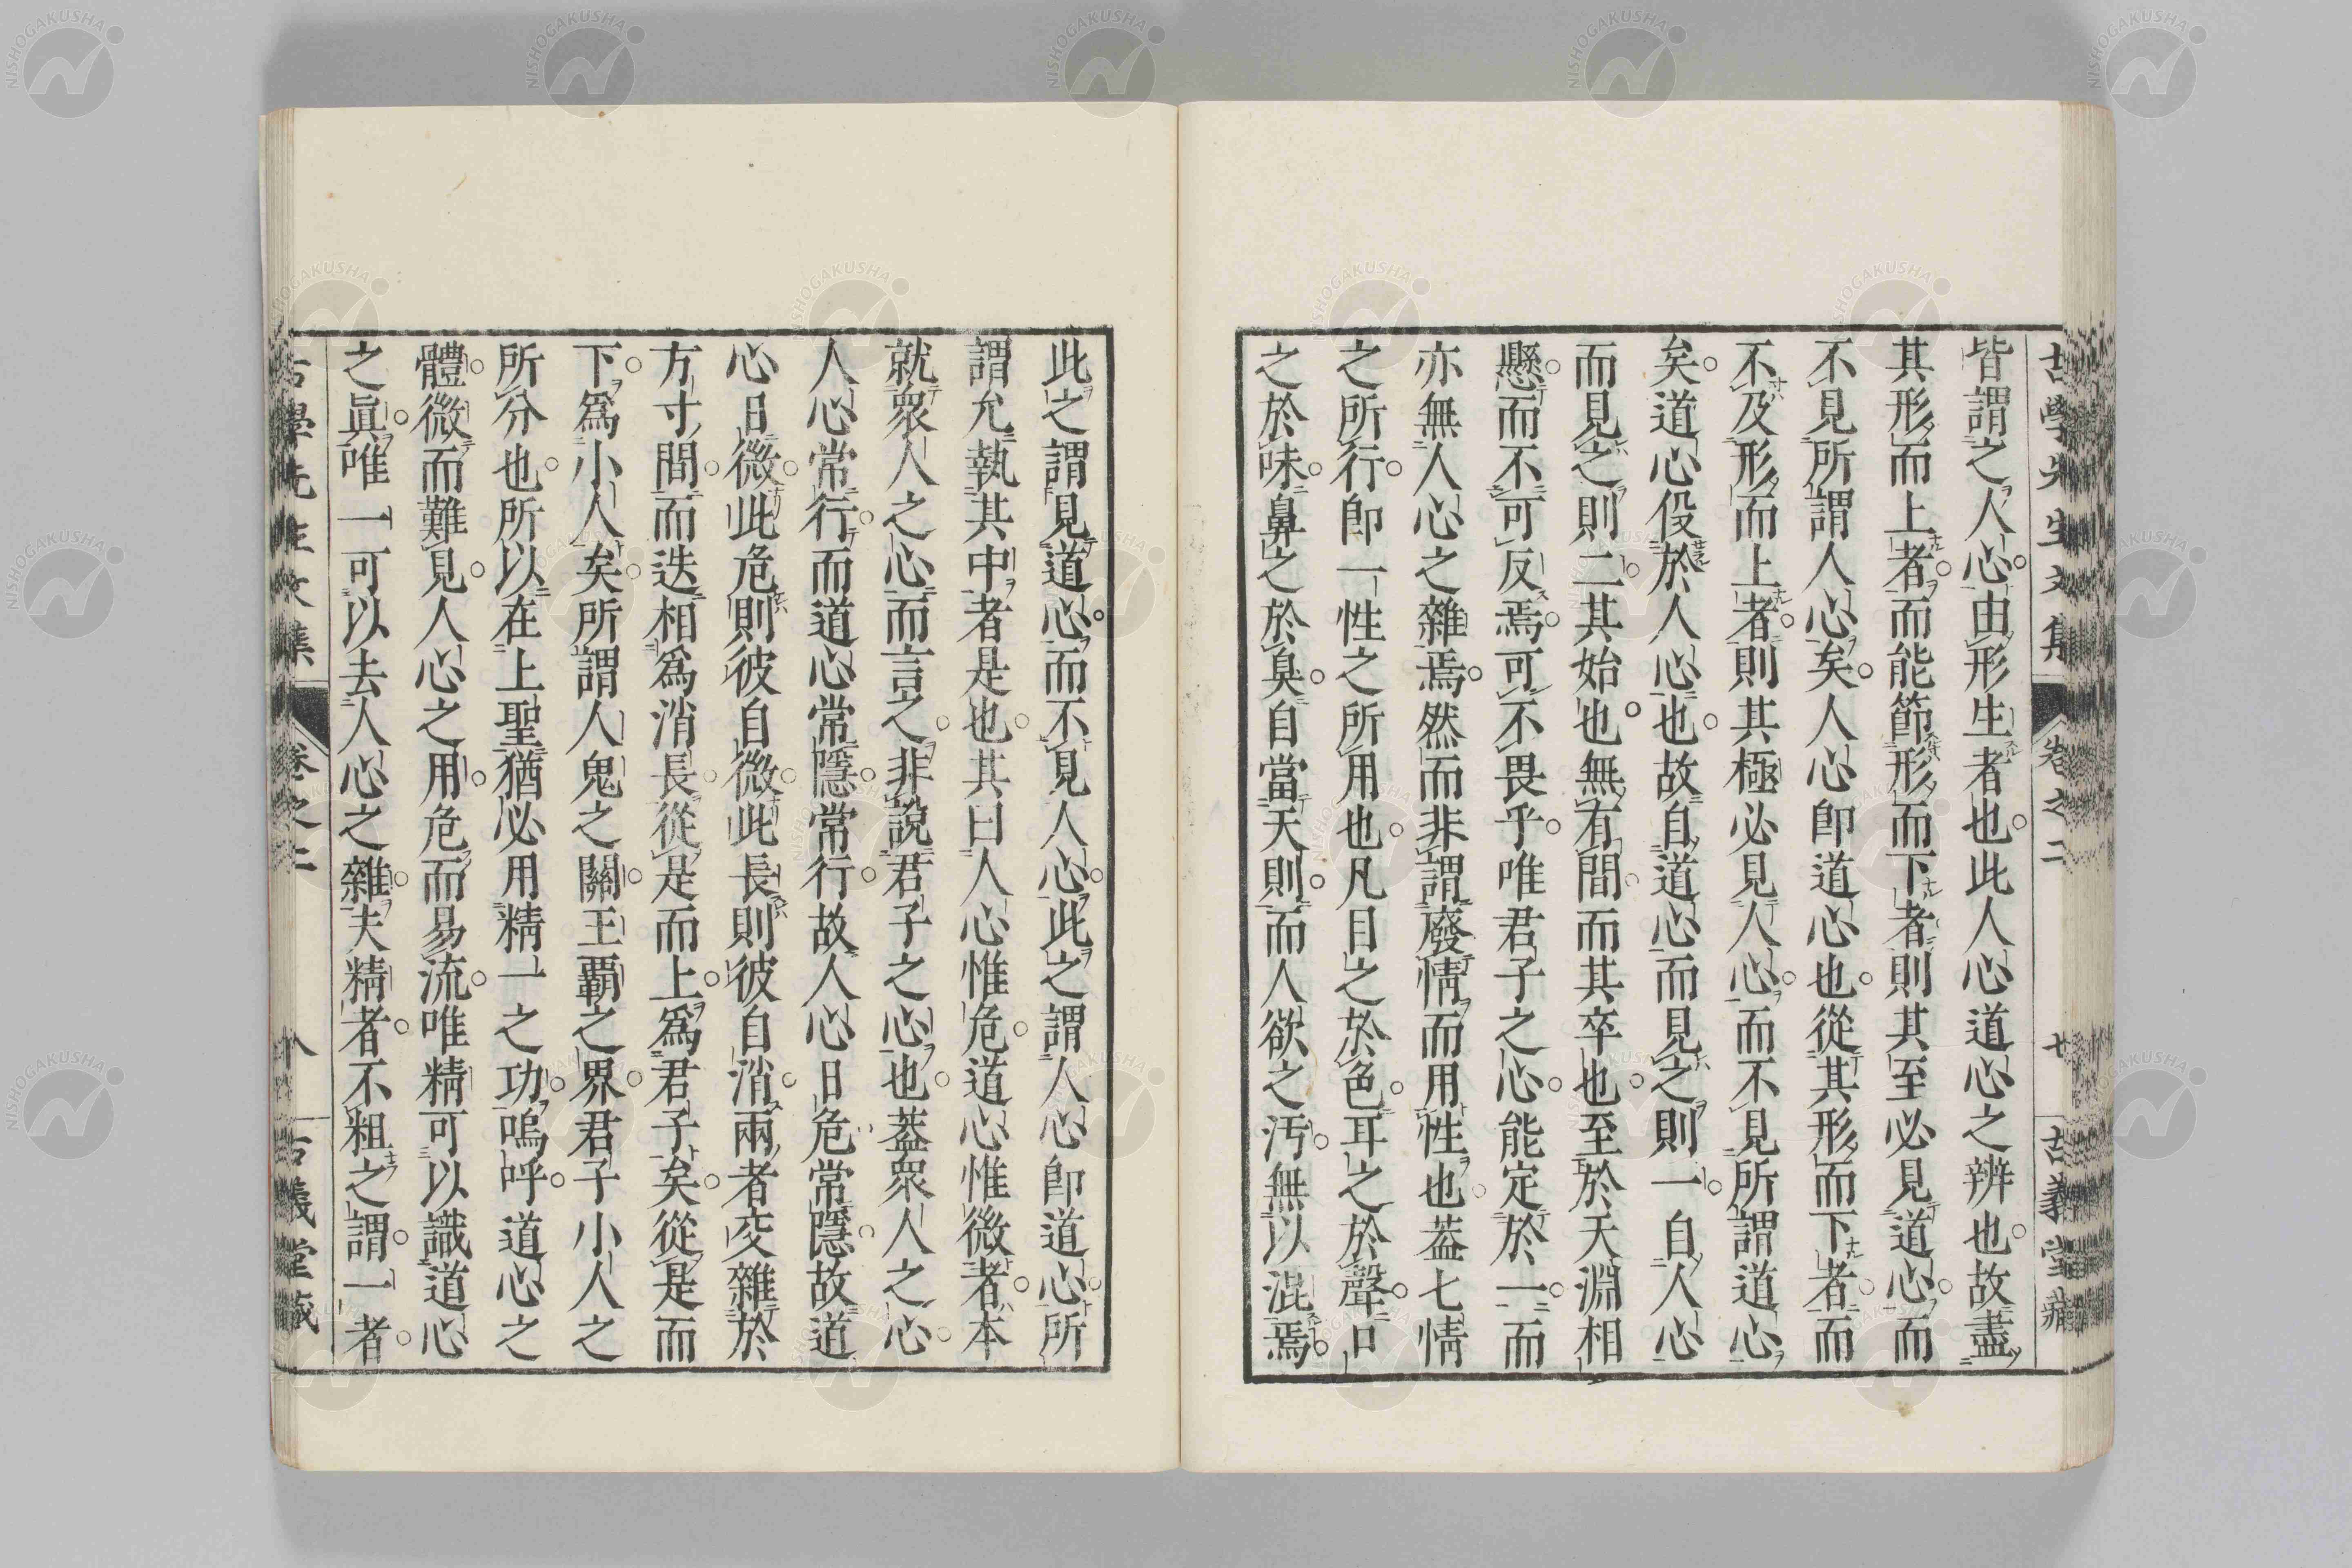 古學先生文集 卷之二 七 古義堂藏
皆謂之人心。由形生者也。此人心道心之辨也。故盡
其形而上者。而能節形而下者則其至必見道心。而
不見所謂人心矣。人心卽道心也。從其形而下者。而
不及形而上者。則其極必見人心。而不見所謂道心
矣。道心役於人心也。故自道心而見之則一。自人心
而見之則二。其始也。無有間而其卒也。至於天淵相
懸。而不可反焉。可不畏乎。唯君子之心。能定於一。而
亦無人心之雜焉。然而非謂廢情而用性也。蓋七情
之所行。卽一性之所用也。凡目之於色。耳之於聲。口
之於味。鼻之於臭。自當天則。而人欲之汚。無以混焉。
此之謂見道心。而不見人心。此之謂人心卽道心。所
謂允執其中者是也。其曰人心惟危。道心惟微者。本
就衆人之心而言之。非說君子之心也。蓋衆人之心。
人心常行。而道心常隱。常行。故人心日危常隱。故道
心日微。此危則彼自微。此長則彼自消。兩者交雜於
方寸間。而迭相爲消長。從是而上。爲君子矣。從是而
下。爲小人矣。所謂人鬼之關。王覇之界。君子小人之
所分也。所以在上聖猶必用精一之功。嗚呼。道心之
體。微而難見。人心之用。危而易流。唯精可以識道心
之眞。唯一可以去人心之雜。夫精者。不粗之謂。一者。
古學先生文集 卷之二 八 古義堂藏